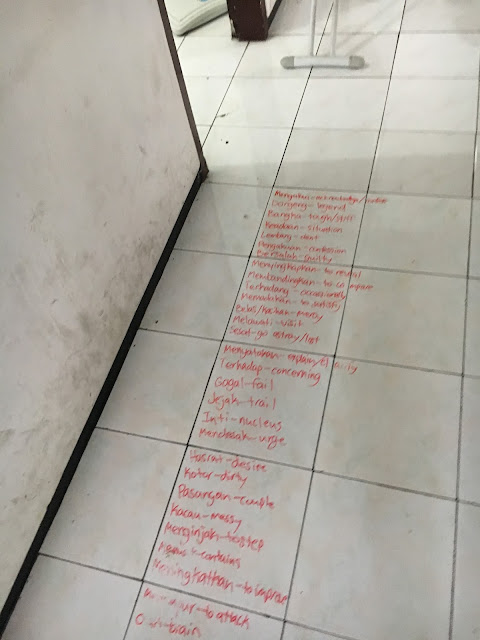 Mengakui-acknowledge/
Dongeng-legend
Bangka-tough/stiff
Keadaan-situation
Lentang-
Pengakuan-confession
Bersalah-guilty
Menyingkapkan-to reveal
Membandingkan-to compare
Terkadang-occasionally
Memadakan-to satisfy
Belas/kasihan-mercy
Melawati-visit
Sesat-go astray/lost
Menyatakan-explain/
Terhadap-concerning
Gagal-fail
Jejak-trail
Inti-nucleus
Mendesak-urge
Hasrat-desire
Kotor-dirty
Pasangan-couple
Kacau-messy
Menginjak-to step
contains
Meningkatkan-to improve
to attack
brain